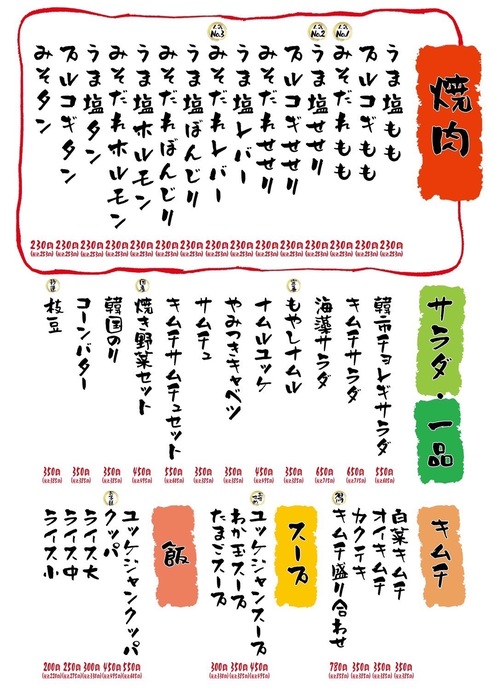 焼肉
うま塩もも
230円
(税込253円)
プルコギもも
230円
(税込253円)
人気No.1
みそだれもも
230円
(税込253円)
人気No.2
うま塩せせり
230円
(税込253円)
プルコギせせり
230円
(税込253円)
みそだれせせり
230円
(税込253円)
うま塩レバー
230円
(税込253円)
人気No.3
みそだれレバー
230円
(税込253円)
うま塩ぼんじり
230円
(税込253円)
みそだれぼんじり
230円
(税込253円)
うま塩ホルモン
230円
(税込253円)
みそだれホルモン
230円
(税込253円)
うま塩タン
230円
(税込253円)
プルコギタン
230円
(税込253円)
みそタン
230円
(税込253円)
サラダ・一品
韓市チョレギサラダ
550円
(税込605円)
キムチサラダ
650円
(税込715円)
海藻サラダ
650円
(税込715円)
もやしナムル
350円
(税込385円)
ナムルユッケ
450円
(税込495円)
やみつきキャベツ
350円
(税込385円)
サムチュ
350円
(税込385円)
キムチサムチュセット
550円
(税込605円)
焼き野菜セット
450円
(税込495円)
韓国のり
350円
(税込385円)
コーンバター
350円
(税込385円)
枝豆
350円
(税込385円)
キムチ
白菜キムチ
350円
(税込385円)
オイキムチ
350円
(税込385円)
カクテキ
350円
(税込385円)
キムチ盛り合わせ
780円
(税込858円)
スープ
ユッケジャンスープ
450円
(税込495円)
わか玉スープ
350円
(税込385円)
たまごスープ
300円
(税込330円)
飯
ユッケジャンクッパ
550円
(税込605円)
クッパ
450円
(税込495円)
ライス大
300円
(税込330円)
ライス中
250円
(税込275円)
ライス小
200円
(税込220円)